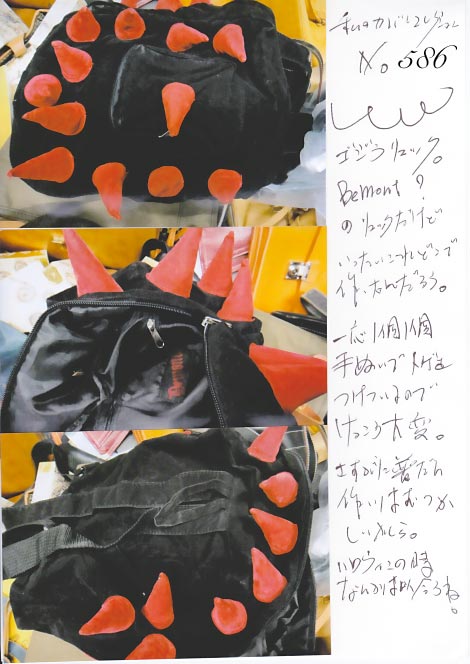 私のカバンコレクション
No. 586
ゴジラリュック。
Bemont?
のリュックだけど
いったいこれどこで
作ったんだろう。
一応1個1個
手ぬいでトゲを
つけているので
けっこう大変。
さすがに普だん
作りはむつか
しいかしら。
ハロウィンの時
なんかは似合うね。